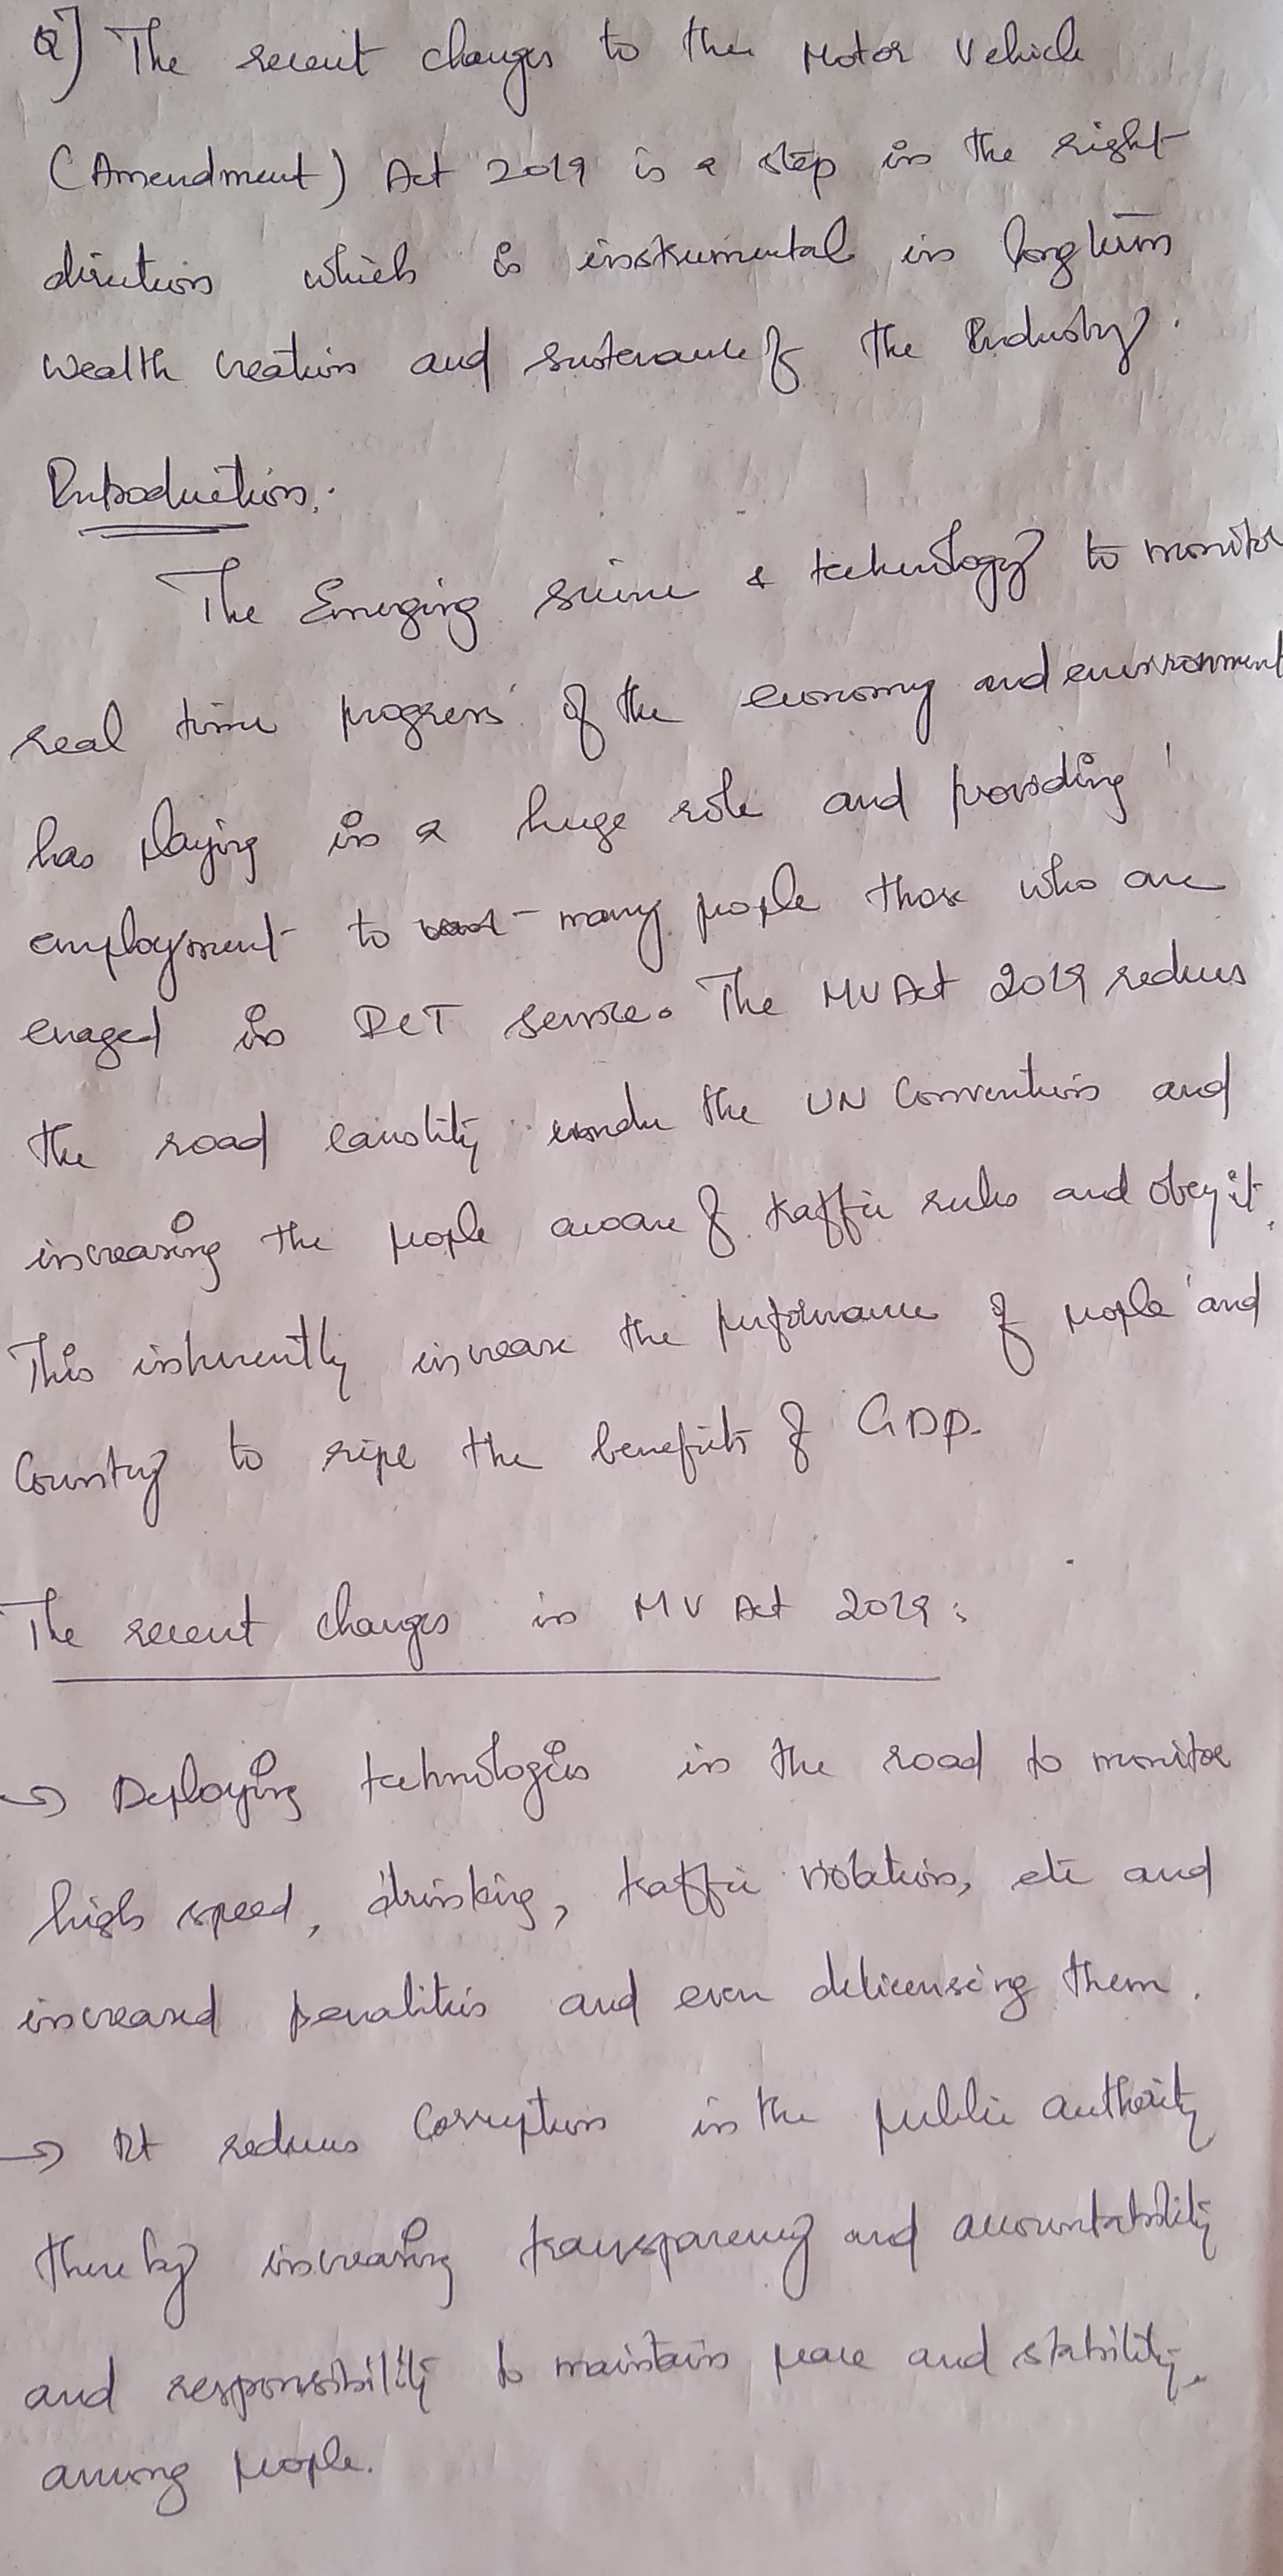 Q] The recent changes to the Motor Vehicle
(Amendment) Act 2019 is a step in the right
direction which is instrumental in longterm
wealth creation and sustenance of the Industry.
Introduction:
The Emerging science & technology to monitor
real time progress of the economy and environment
has playing in a huge role and providing
employment to many people those who are
enaged in ICT service. The MV Act 2019 reduces
the road causlity under the UN Convention and
increasing the people aware of traffic rules and obey it.
This inherently increase the performance of people and
Country to ripe the benefits of GDP.
The recent changes in MV Act 2019:
→ Deploying technologies in the road to monitor
high speed, drinking, traffic violation, etc and
increased penalities and even delicensing them.
→ It reduces Corruption in the public authority
thereby increasing transparency and accountability
and responsibility to maintain peace and stability
among people.